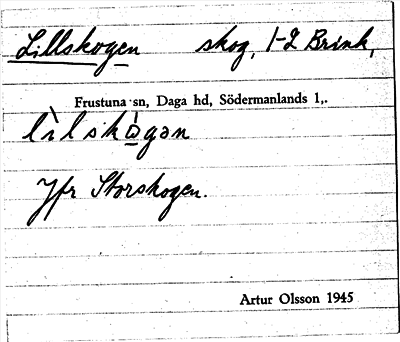 Lillskogen skog, 1-2 Brink,
Frustuna sn, Daga hd, Södermanlands l,.
lìlskɷ̀gən
Jfr Storskogen.
Artur Olsson 1945